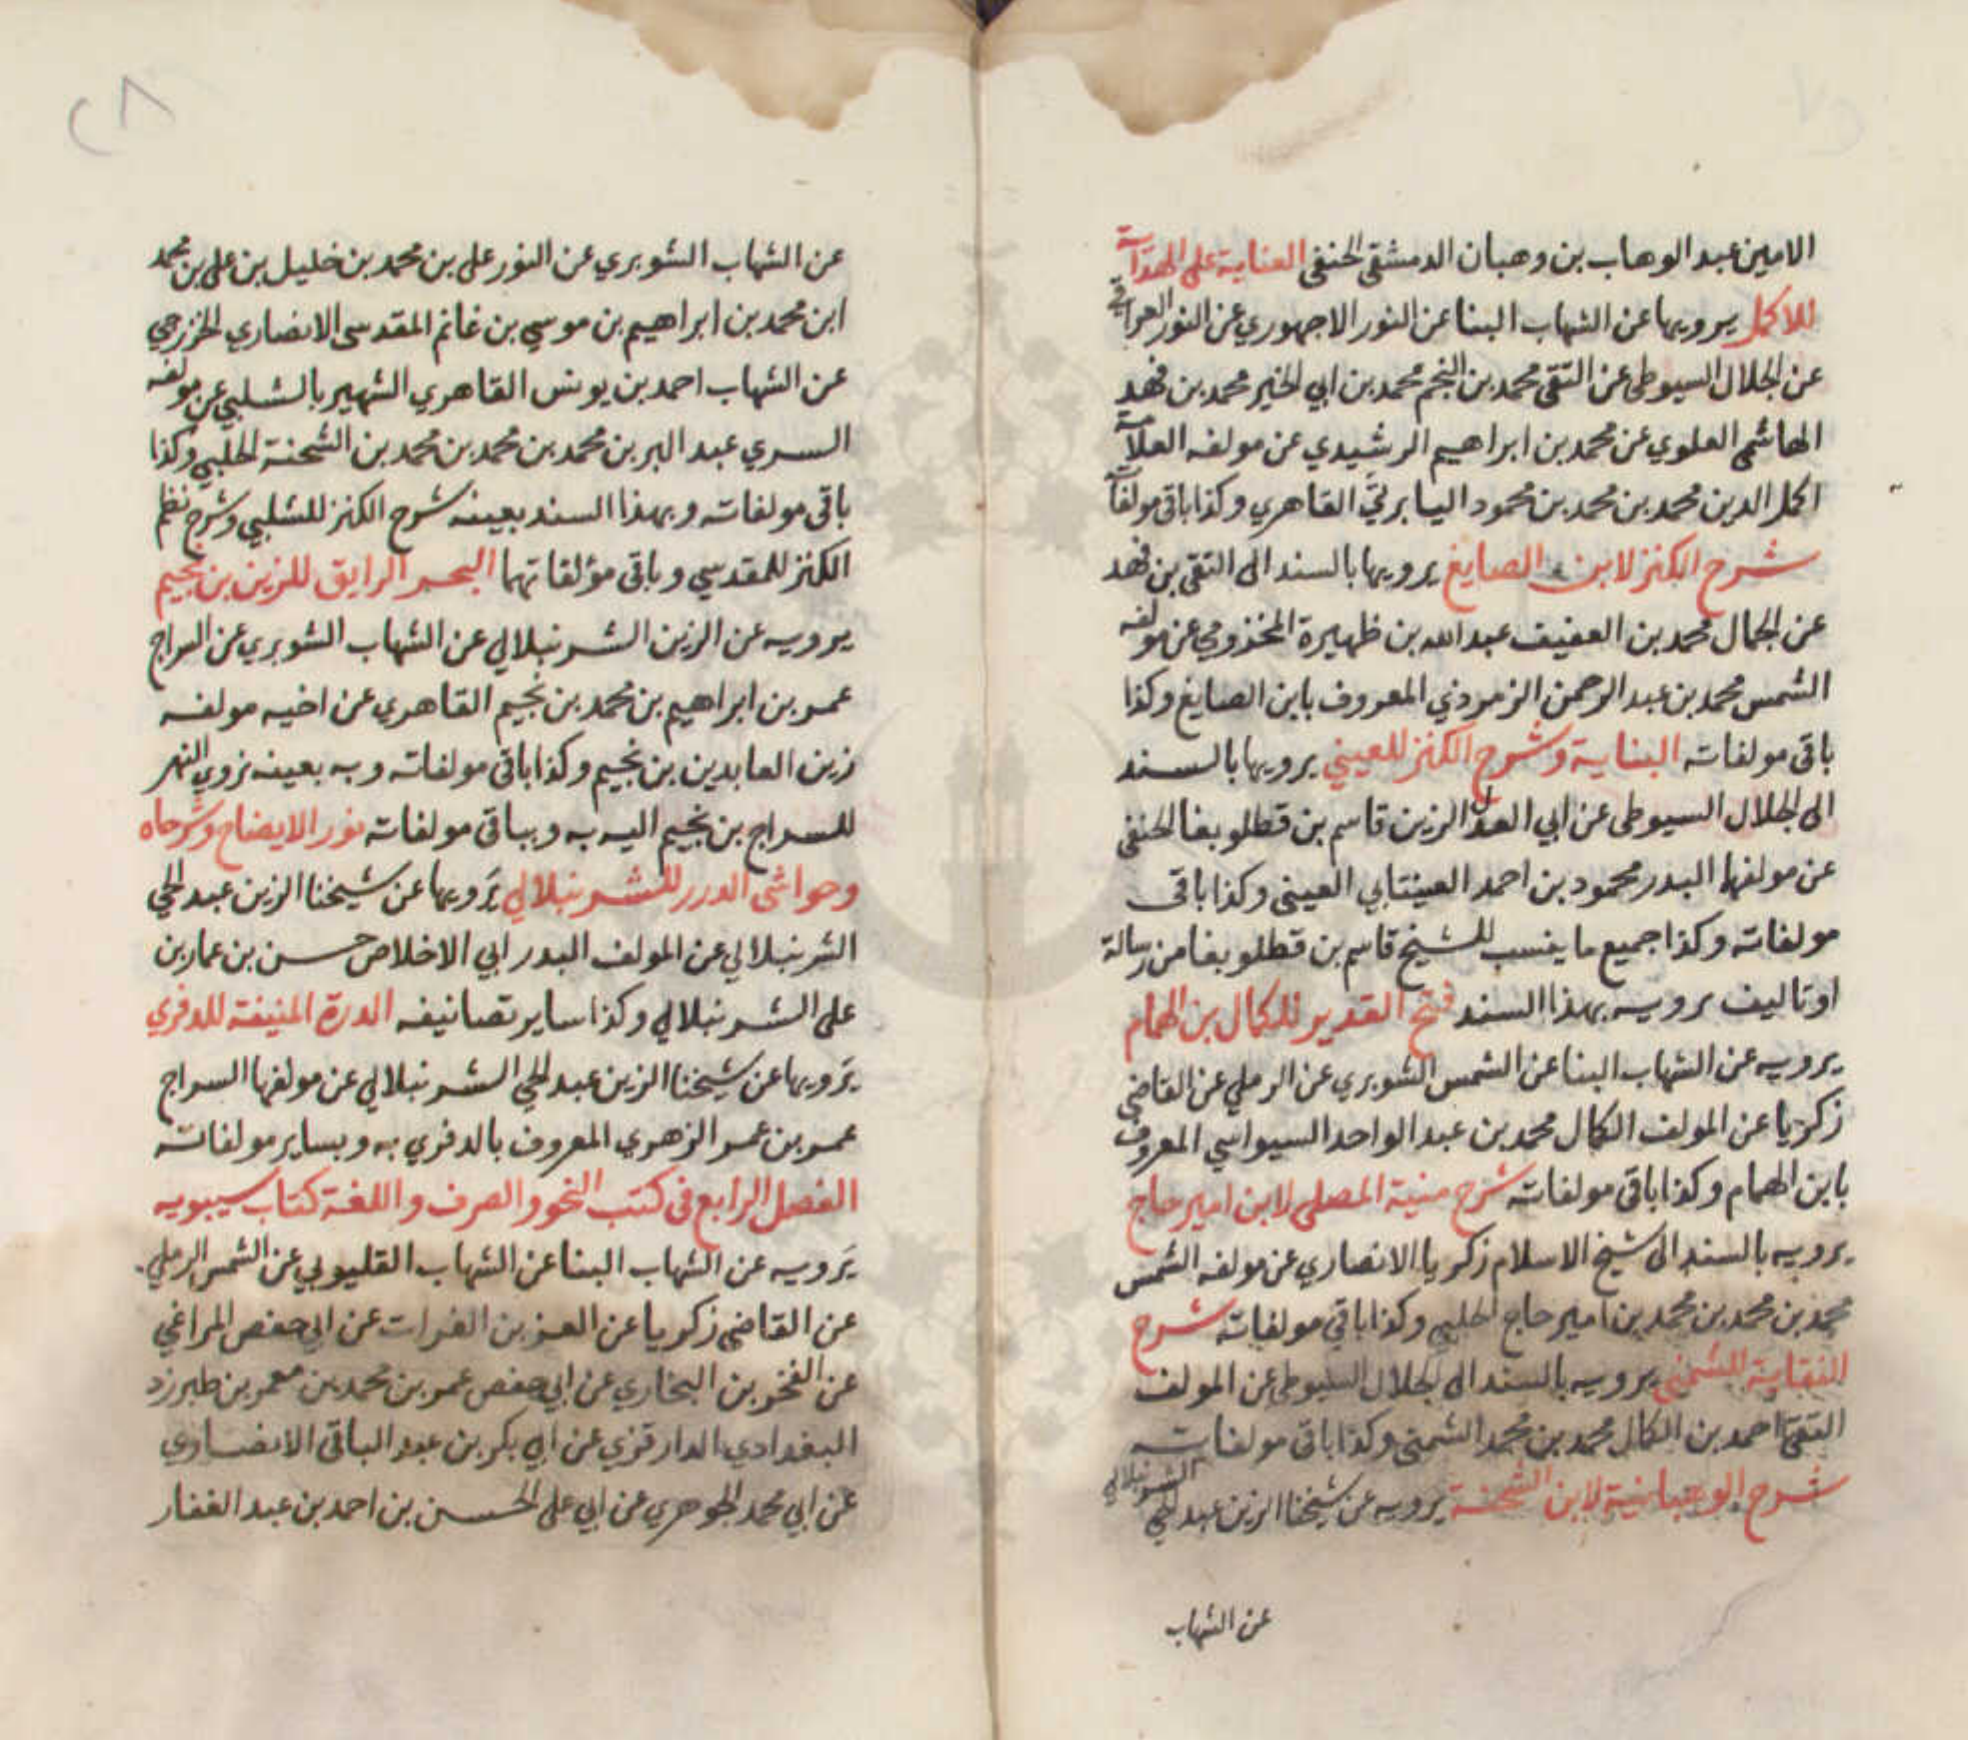 الامين عبد الوهاب بن وهبان الدمشقى الحنفى العناية على الهداية
للاكمل يرويها عن الشهاب البنا عن النور الاجهوري عن النور القرافي
عن الجلال السيوطى عن التقى محمد بن النجم محمد بن ابي الخير محمد بن فهد
الهاشمى العلوي عن محمد بن ابراهيم الرشيدي عن مولفه العلامة
اكمل الدين محمد بن محمد بن محمود البابرتي القاهري وكذا باقى مولفاته
شرح الكنز لابن الصايغ يرويها بالسند الى التقى بن فهد
عن الجمال محمد بن العفيف عبد الله بن ظهيرة المخزومي عن مولفه
الشمس محمد بن عبد الرحمن الزمرذي المعروف بابن الصايغ وكذا
باقى مولفاته البناية وشرح الكنز للعيني يرويها بالسند
الى الجلال السيوطى عن ابي العدل الزين قاسم بن قطلوبغا الحنفى
عن مولفها البدر محمود بن احمد العينتابي العينى وكذا باقى
مولفاته وكذا جميع ما ينسب للشيخ قاسم بن قطلوبغا من رسالة
او تاليف يرويه بهذا السند فتح القدير للكمال بن الهمام
يرويه عن الشهاب البنا عن الشمس الشوبري عن الرملي عن القاضى
زكريا عن المولف الكمال محمد بن عبد الواحد السيواسي المعروف
بابن الهمام وكذا باقى مولفاته شرح منية المصلى لابن امير حاج
يرويه بالسند الى شيخ الاسلام زكريا الانصاري عن مولفه الشمس
محمد بن محمد بن محمد بن امير حاج الحلبي وكذا باقي مولفاته شرح
النقاية للشمنى يرويه بالسند الى الجلال السيوطى عن المولف
التقى احمد بن الكمال محمد بن محمد الشمنى وكذا باقى مولفاته
شرح الوهبانية لابن الشحنة يرويه عن شيخنا الزين عبد الحي الشرنبلالي
عن الشهاب
٢٨
عن الشهاب الشوبري عن النور على بن محمد بن خليل بن على بن محمد
ابن محمد بن ابراهيم بن موسي بن غانم المقدسى الانصاري الخزرجي
عن الشهاب احمد بن يونس القاهري الشهير بالشلبي عن مولفه
السري عبد البر بن محمد بن محمد بن محمد بن الشحنة الحلبي وكذا
باقى مولفاته وبهذا السند بعينه شرح الكنز للشلبي وشرح نظم
الكنز للمقدسي وباقى مؤلفاتهما البحر الرايق للزين بن نجيم
يرويه عن الزين الشرنبلالي عن الشهاب الشوبري عن السراج
عمر بن ابراهيم بن محمد بن نجيم القاهري عن اخيه مولفه
زين العابدين بن نجيم وكذا باقى مولفاته وبه بعينه نروي النهر
للسراج بن نجيم اليه به وبباقى مولفاته نور الايضاح وشرحاه
وحواشى الدرر للشرنبلالي يَرويها عن شيخنا الزين عبد الحي
الشرنبلالي عن المولف البدر ابي الاخلاص حسن بن عمار بن
على الشرنبلالي وكذا ساير تصانيفه الدرة المنيفة للدفري
يَرويها عن شيخنا الزين عبد الحي الشرنبلالي عن مولفها السراج
عمر بن عمر الزهري المعروف بالدفري به وبساير مولفاته
الفصل الرابع فى كتب النحو والصرف واللغة كتاب سيبويه
يَرويه عن الشهاب البنا عن الشهاب القليوبي عن الشمس الرملي
عن القاضى زكريا عن العز بن الفرات عن ابي حفص المراغي
عن الفخر بن البخاري عن ابي حفص عمر بن محمد بن معمر بن طبرزد
البغدادي الدارقزي عن ابي بكر بن عبد الباقى الانصاري
عن ابي محمد الجوهري عن ابي على الحسن بن احمد بن عبد الغفار